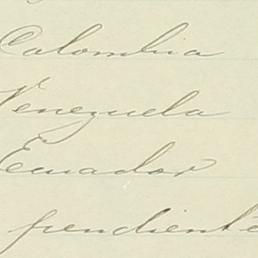 Colombia
Venezuela
Ecuador
pendiente